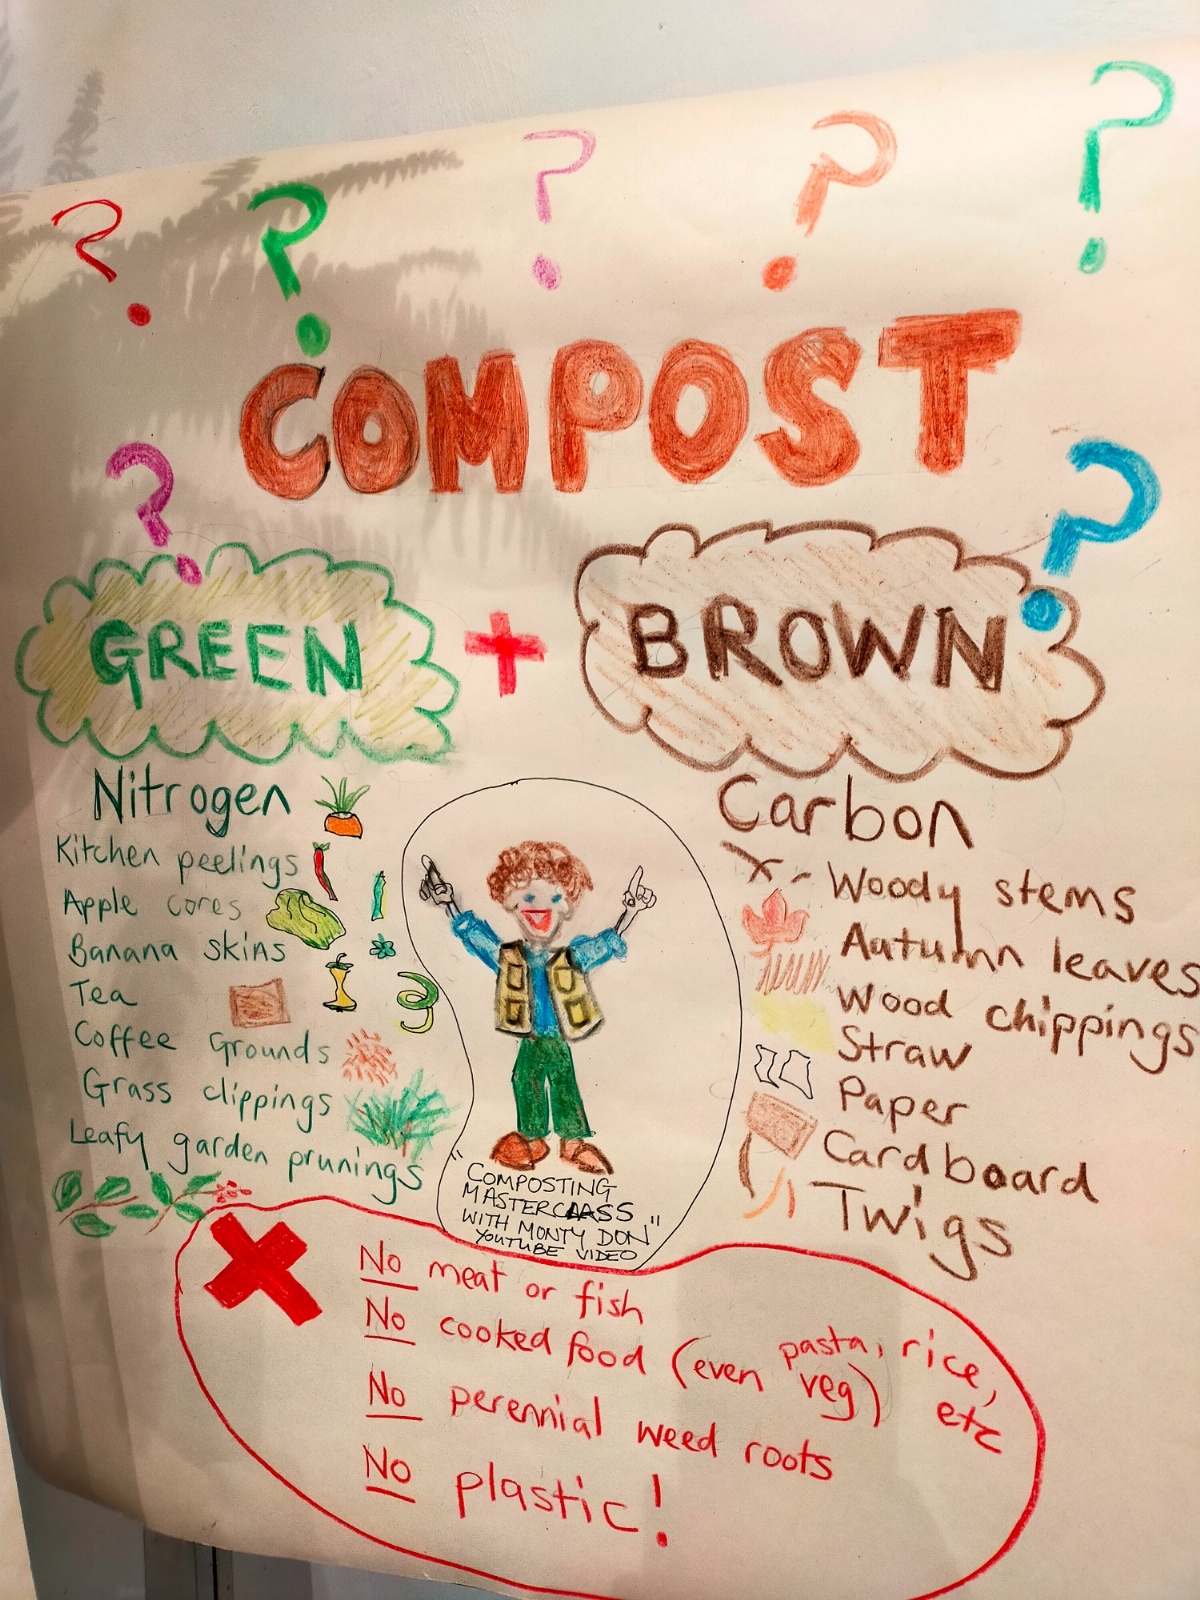 ? ? ? ? ?
COMPOST
? ?
GREEN + BROWN
Nitrogen
Kitchen peelings
Apple cores
Banana skins
Tea
Coffee Grounds
Grass clippings
Leafy garden prunings
Carbon
Woody stems
Autumn leaves
Wood chippings
Straw
Paper
Cardboard
Twigs
"COMPOSTING
MASTERCLASS
WITH MONTY DON"
YOUTUBE VIDEO
No meat or fish
No cooked food (even pasta, rice,
veg) etc
No perennial weed roots
No plastic!